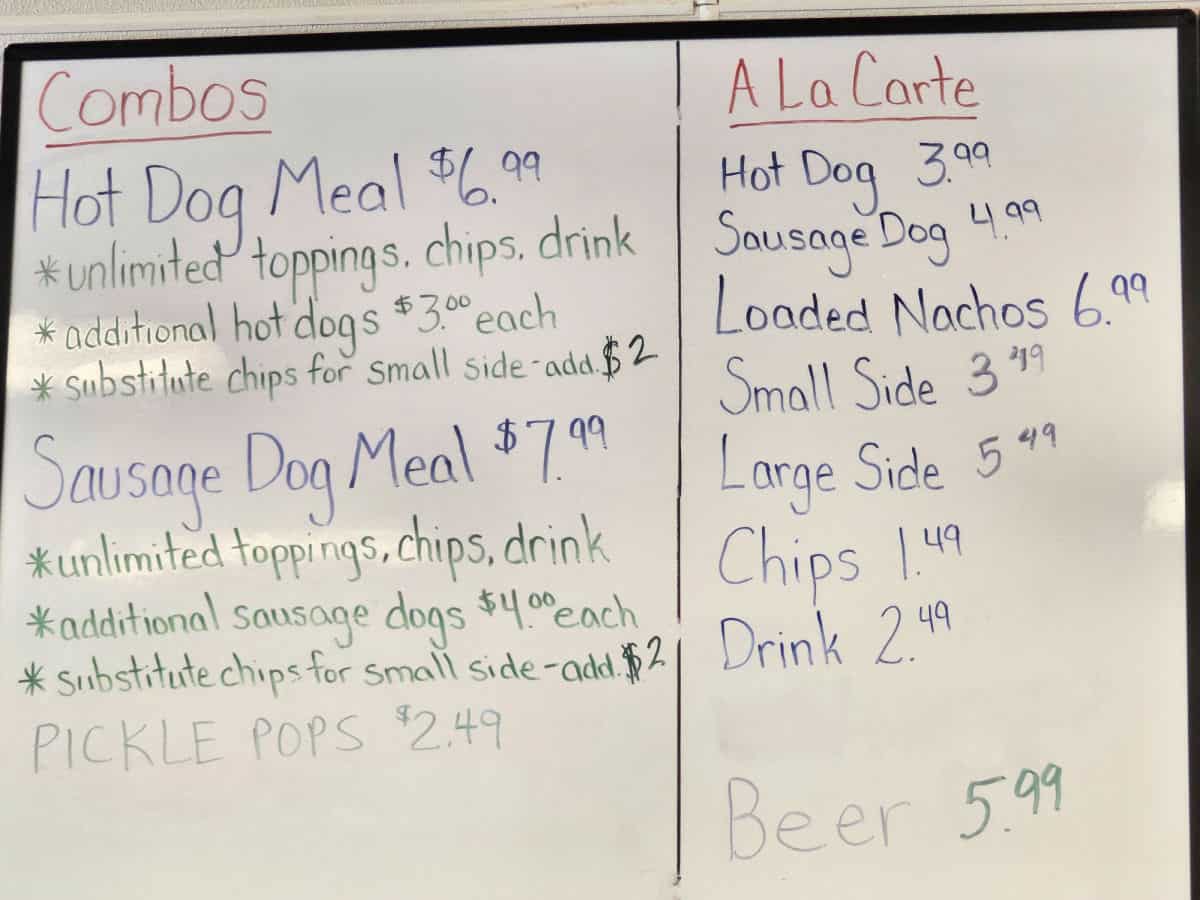 Combos
Hot Dog Meal $6.99
*unlimited toppings, chips, drink
*additional hot dogs $3.00 each
* substitute chips for small side-add.$2
Sausage Dog Meal $7.99
*unlimited toppings, chips, drink
*additional sausage dogs $4.00 each
* substitute chips for small side-add.$2
PICKLE POPS $2.49
A La Carte
Hot Dog 3.99
Sausage Dog 4.99
Loaded Nachos 6.99
Small Side 3 49
Large Side 5 49
Chips 1.49
Drink 2.49
Beer 5.99